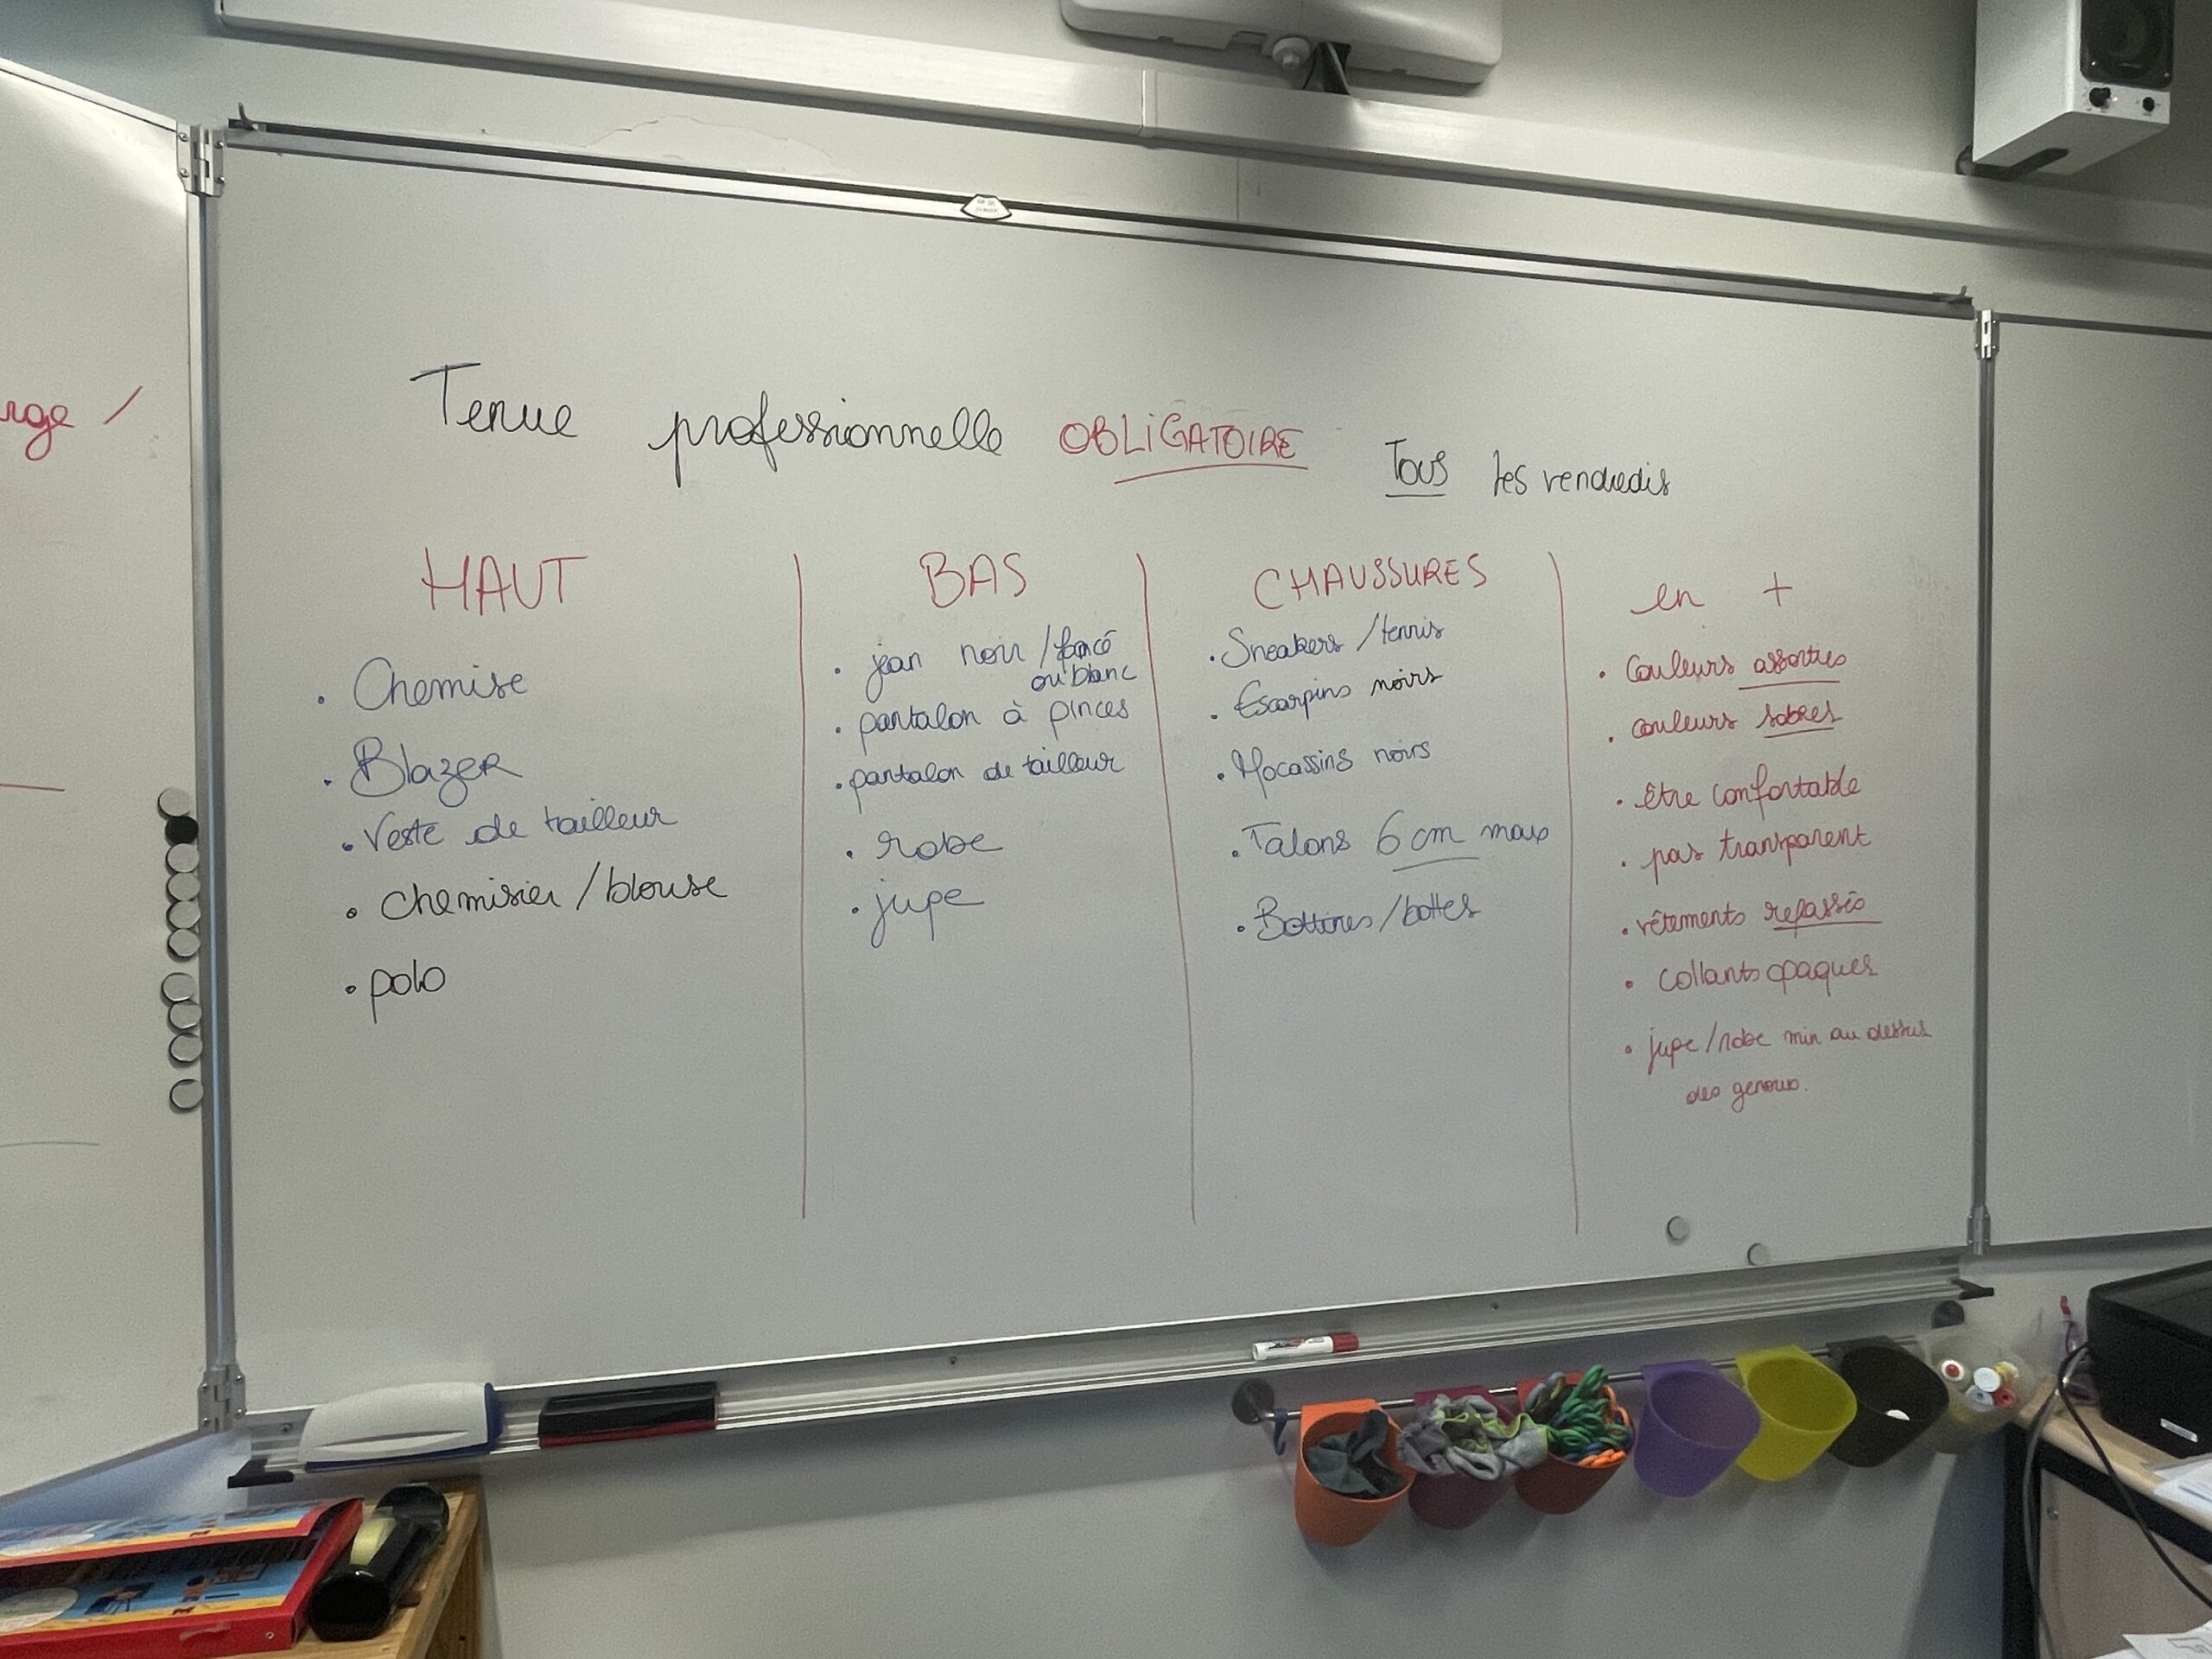 Tenue professionnelle OBLIGATOIRE Tous les vendredis
HAUT
. Chemise
. Blazer
. Veste de tailleur
. chemisier / blouse
. polo
BAS
. jean noir / foncé
ou blanc
. pantalon à pinces
. pantalon de tailleur
. robe
. jupe
CHAUSSURES
. Sneakers / tennis
. Escarpins noirs
. Mocassins noirs
. Talons 6 cm max
. Bottines / bottes
en +
. Couleurs assorties
. couleurs sobres
. être confortable
. pas transparent
. vêtements repassés
. collants opaques
. jupe / robe min au dessus
des genoux.